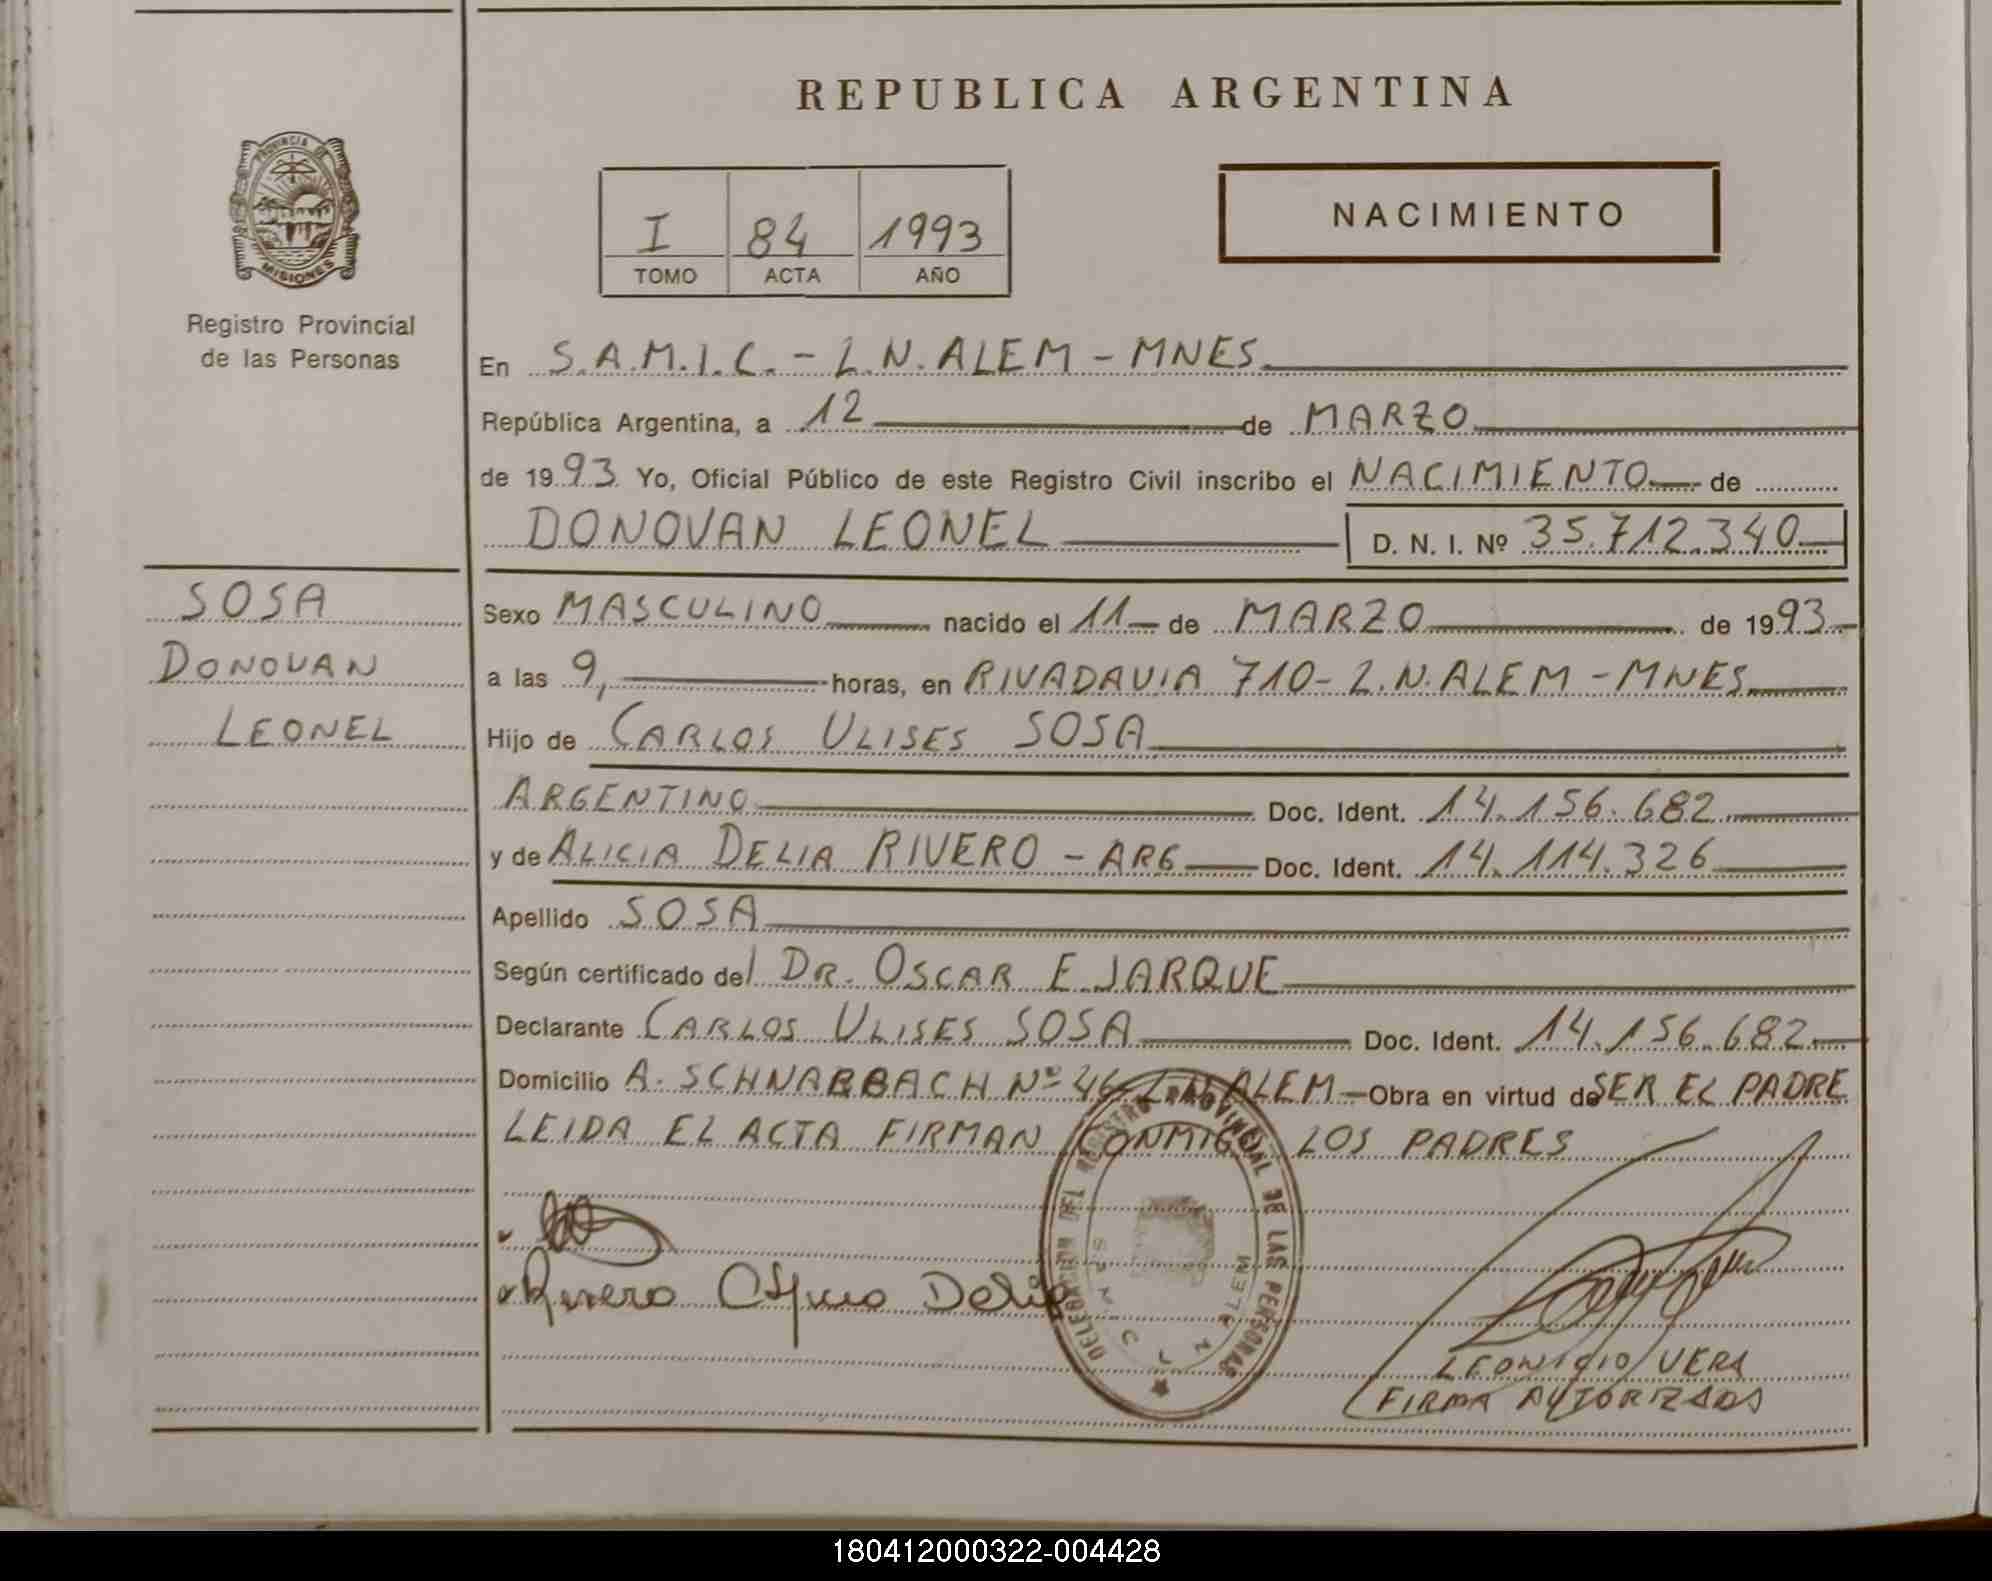 REPUBLICA ARGENTINA
PROVINCIA DE MISIONES
Registro Provincial
de las Personas
I 84 1993
TOMO ACTA AÑO
NACIMIENTO
En S.A.M.I.C. - L.N. ALEM - MNES
República Argentina, a 12 de MARZO
de 1993 Yo, Oficial Público de este Registro Civil inscribo el NACIMIENTO de
DONOVAN LEONEL D. N. I. Nº 35.712.340
SOSA
DONOVAN
LEONEL
Sexo MASCULINO nacido el 11 de MARZO de 1993
a las 9, horas, en RIVADAVIA 710 - L.N. ALEM - MNES
Hijo de CARLOS ULISES SOSA
ARGENTINO Doc. Ident. 14.156.682
y de ALICIA DELIA RIVERO - ARG Doc. Ident. 14.114.326
Apellido SOSA
Según certificado del DR. OSCAR EJARQUE
Declarante CARLOS ULISES SOSA Doc. Ident. 14.156.682
Domicilio A. SCHNARBACH Nº 46 - L.N. ALEM Obra en virtud de SER EL PADRE
LEIDA EL ACTA FIRMAN CONMIGO LOS PADRES
Rivero Delia
DELEGACION DEL REGISTRO PROVINCIAL DE LAS PERSONAS
ALEM
LEONICIO VERA
FIRMA AUTORIZADA
180412000322-004428